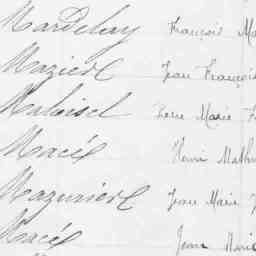 Mardelay François Ma
Mazière Jean François
Maloisel Pierre Marie F
Macé Henri Mathu
Mazurière Jean Marie
Macé Jean Marie